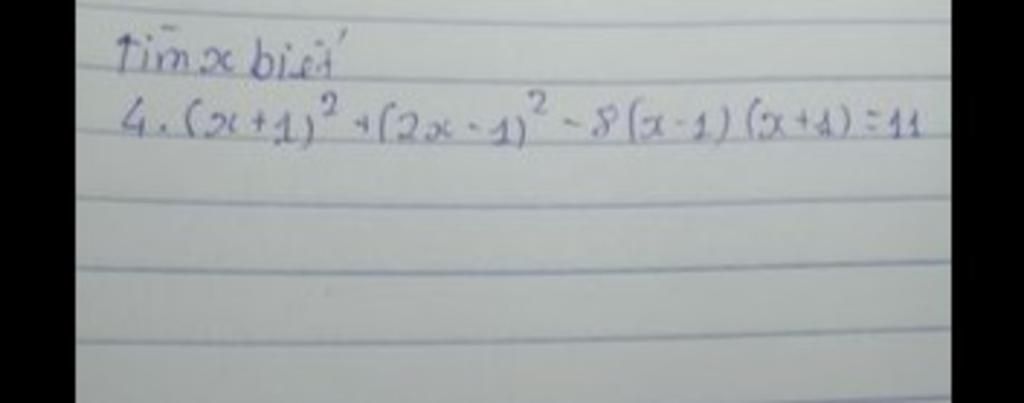 Tìm x biết
4.(x+1)² + (2x-1)² - 8(x-1)(x+1)=11